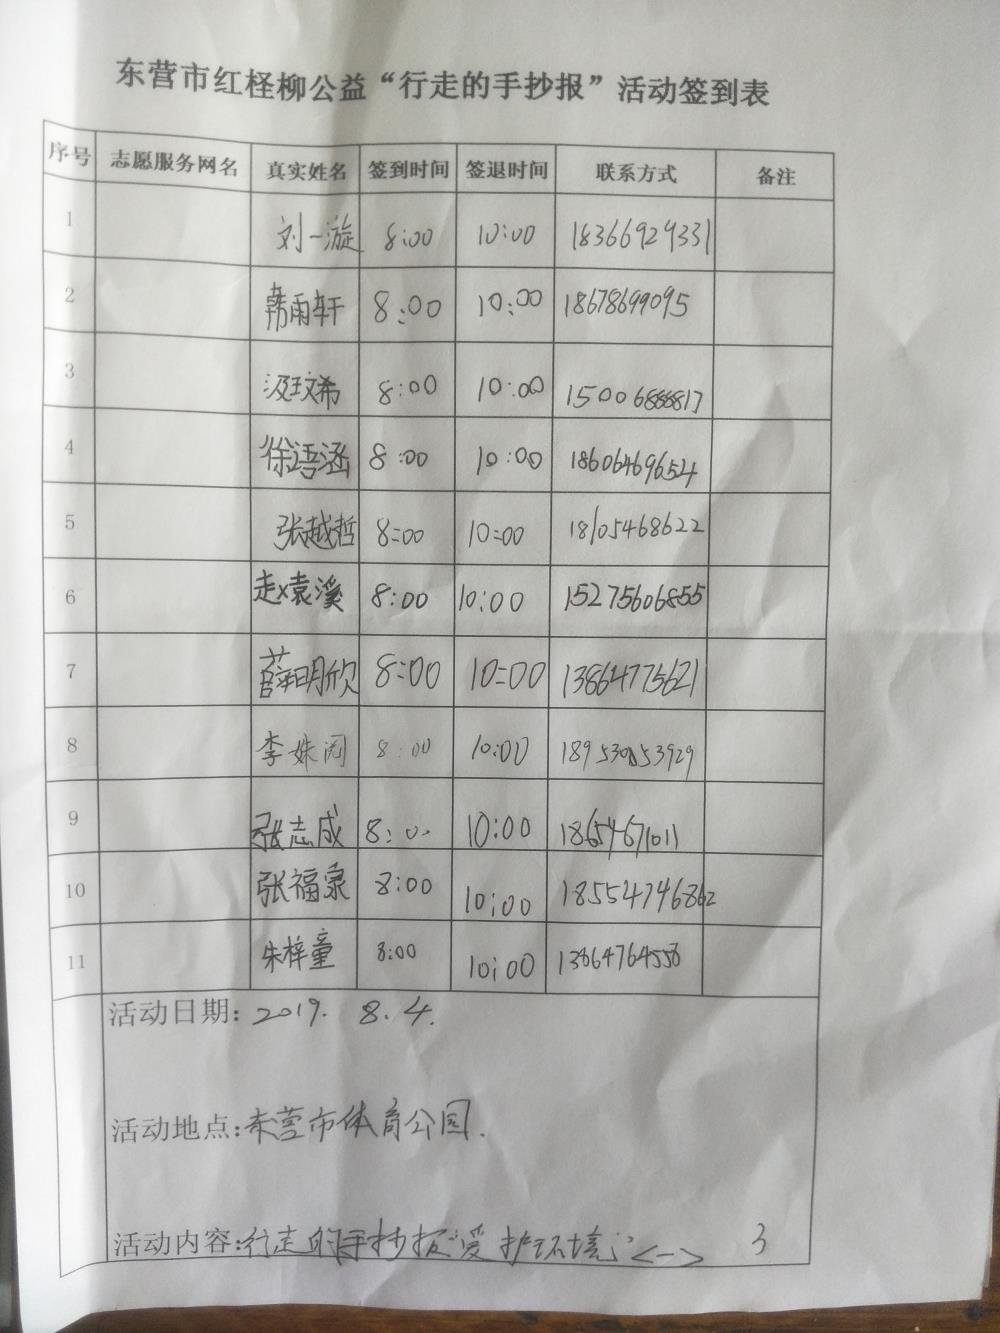 东营市红柽柳公益“行走的手抄报”活动签到表
序号 志愿服务网名 真实姓名 签到时间 签退时间 联系方式 备注
1 刘一漩 8:00 10:00 18366929331
2 韩雨轩 8:00 10:00 18678699095
3 汲玟希 8:00 10:00 15006888817
4 徐语涵 8:00 10:00 18606469654
5 张越哲 8:00 10:00 18105468622
6 赵袁溪 8:00 10:00 15275606855
7 薛明欣 8:00 10:00 13864775621
8 李姝 8:00 10:00
9 张志成 8:00 10:00 18654671011
10 张福泉 8:00 10:00 18554746862
11 朱梓童 8:00 10:00 13864764558
活动日期: 2019. 8. 4.
活动地点: 东营市体育公园.
活动内容: 行走的手抄报“爱护环境”<一> 3